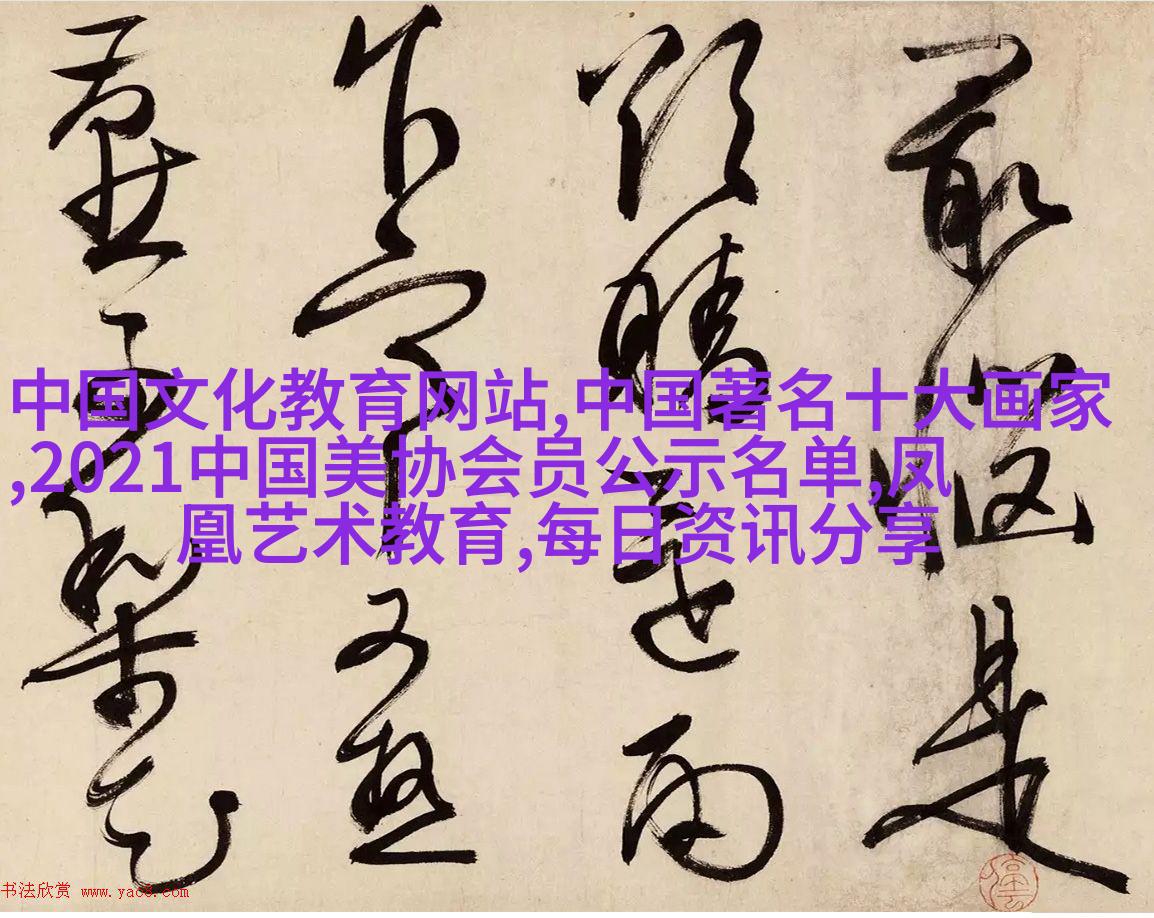 最惱是
晴還雨
乍寒又熱
燕子梨花
中国文化教育网站,中国著名十大画家
,2021中国美协会员公示名单,凤
凰艺术教育,每日资讯分享
书法欣赏 www.yac8.com